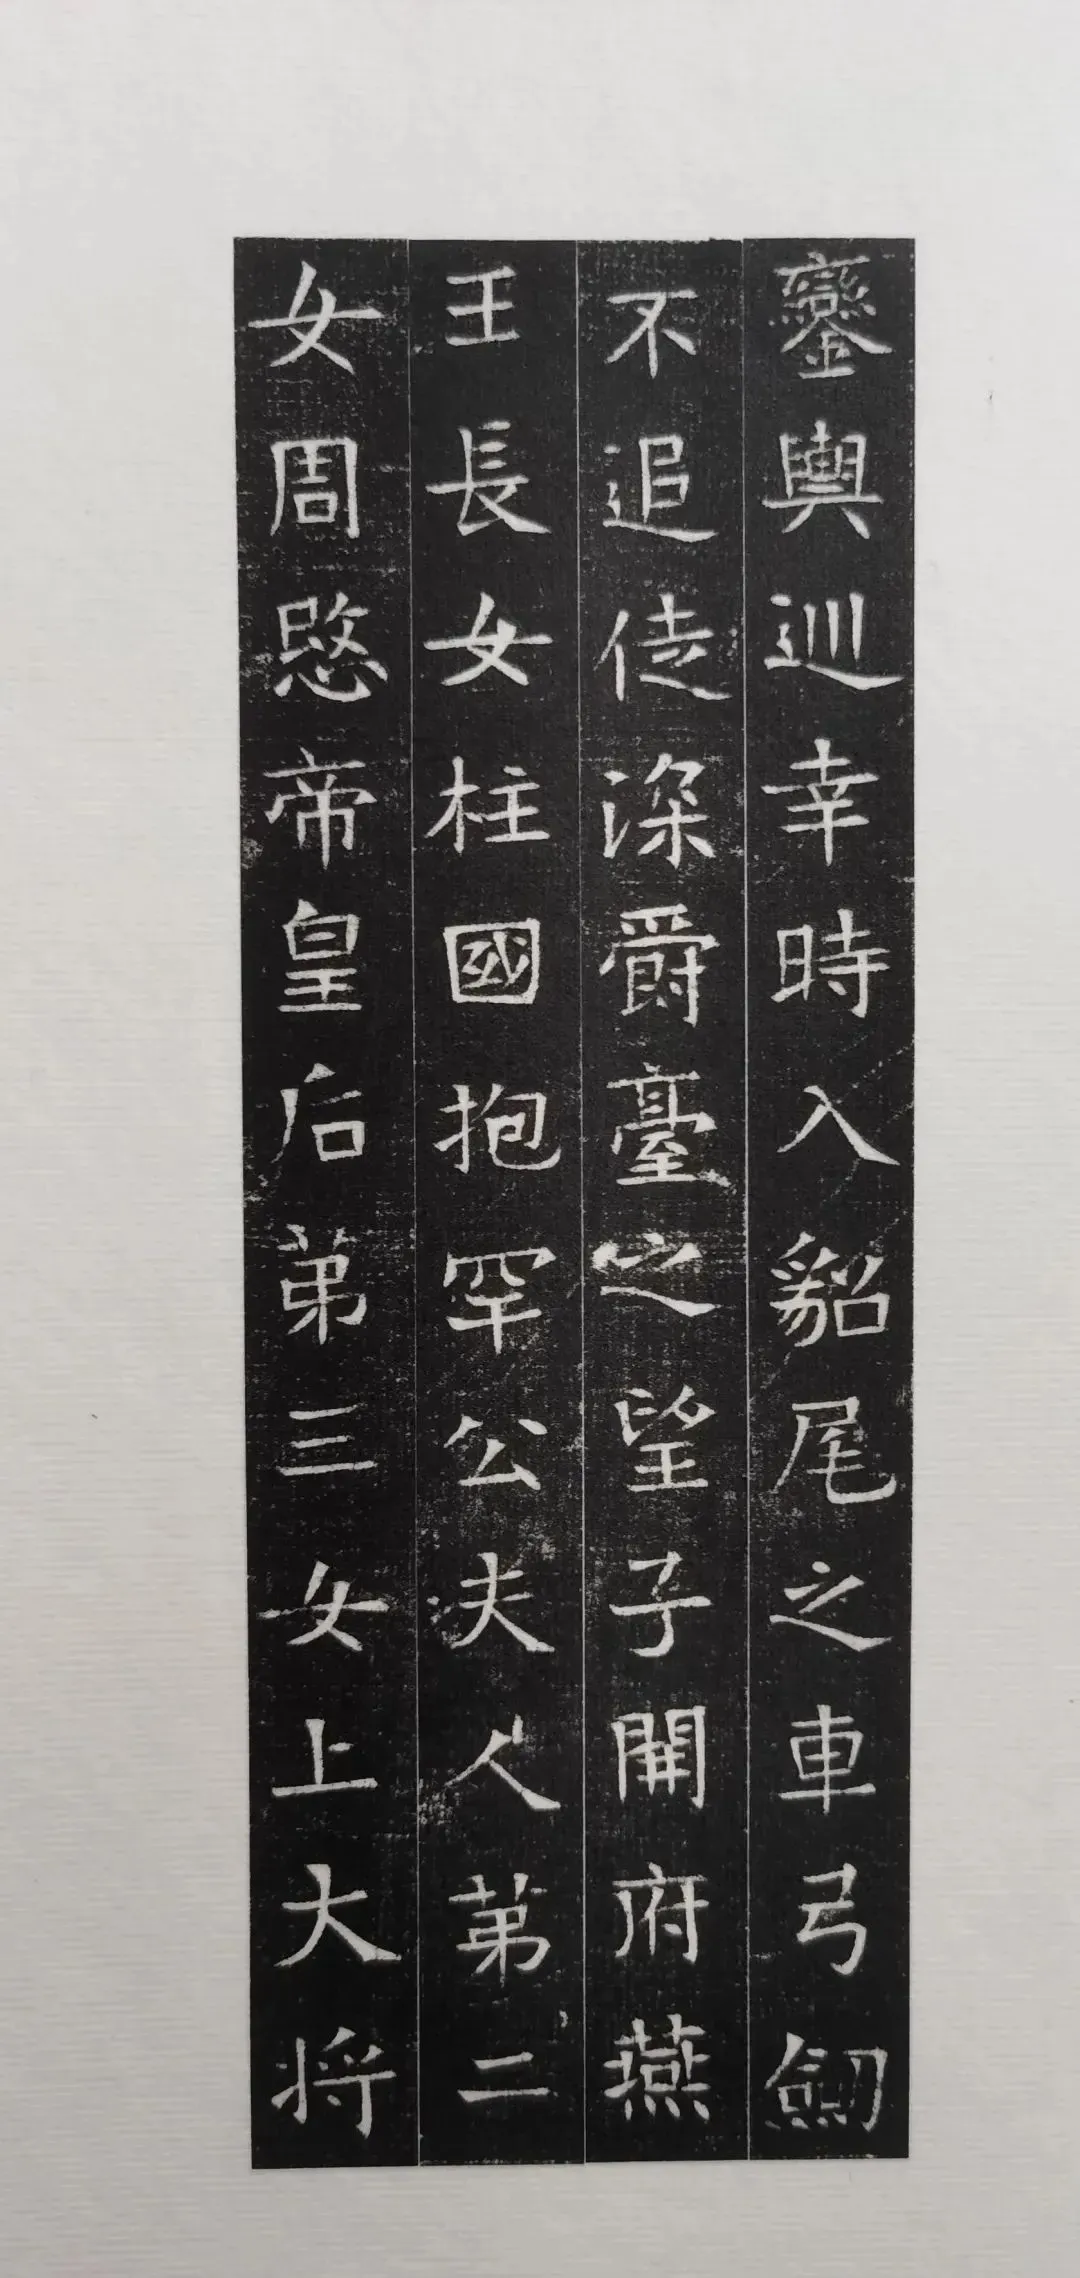 鑾輿巡幸時入貂尾之車弓劒
不追徒深爵臺之望子開府燕
王長女柱國抱罕公夫人苐二
女周愍帝皇后苐三女上大将